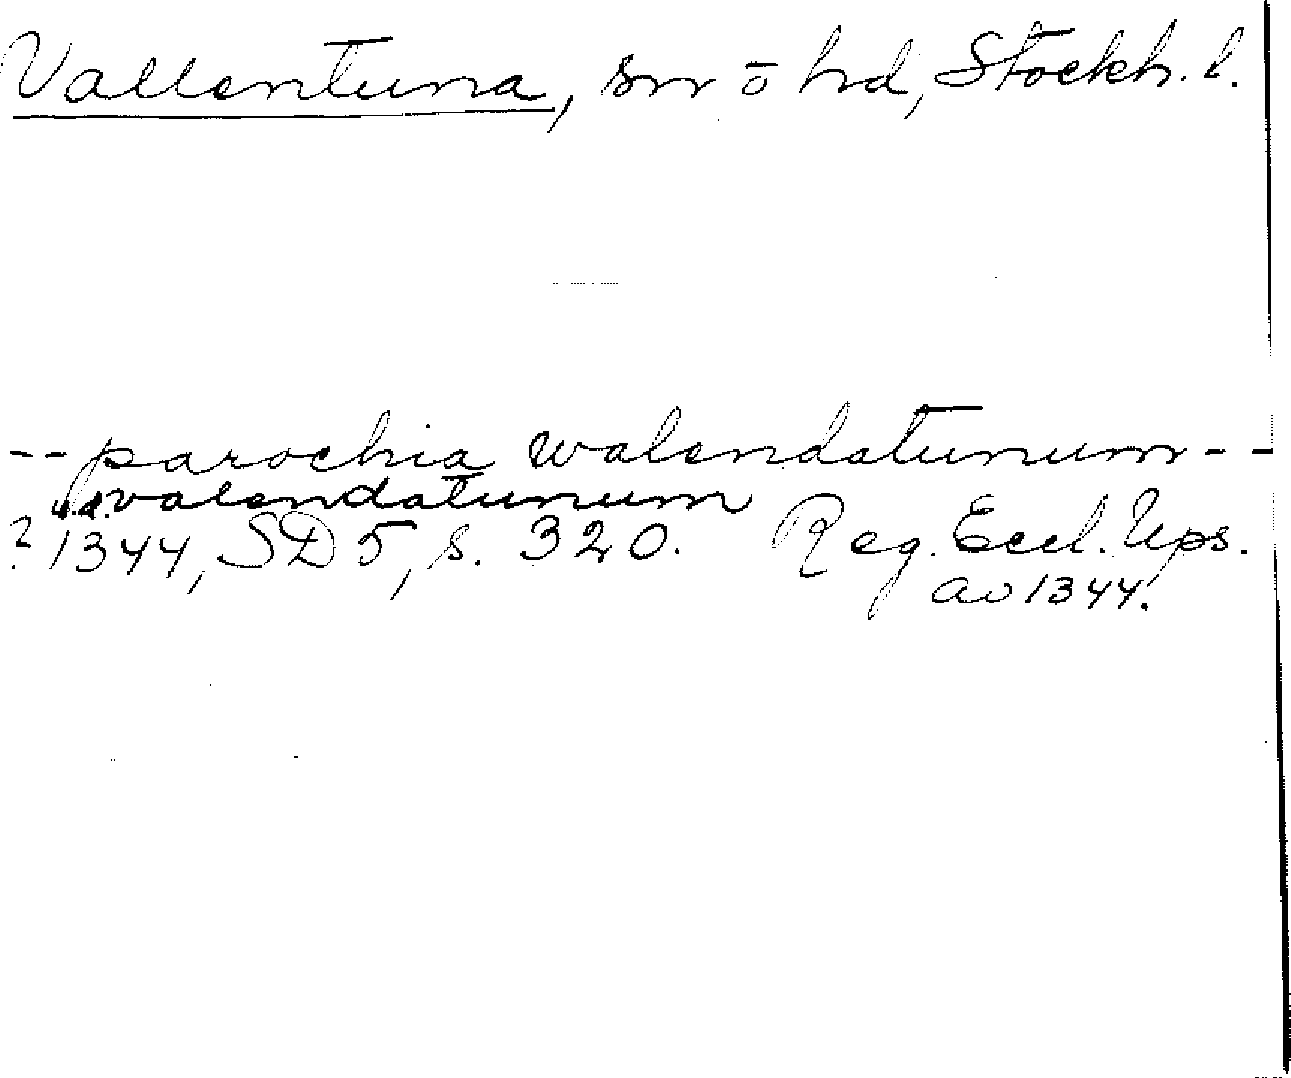 Vallentuna, sn ō hd, Stockh. l.
-- parochia walendatunum --
u.d. valendatunum
? 1344, SD 5, s. 320. Reg. Eccl. Ups.
av 1344.